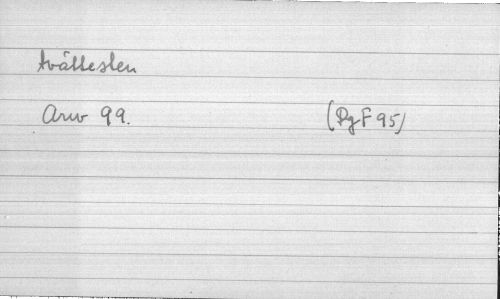 tvättesten
Arw 99. (PgF 95)